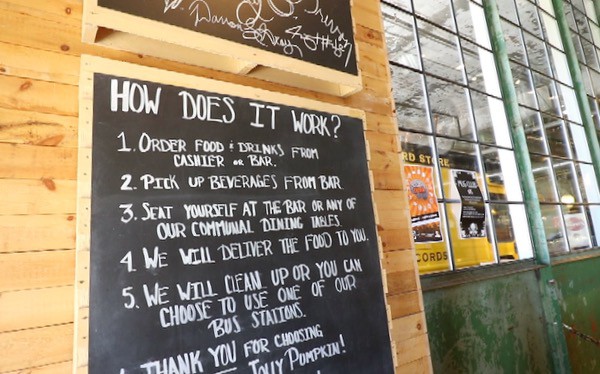 HOW DOES IT WORK?
1. ORDER FOOD & DRINKS FROM
CASHIER OR BAR.
2. PICK UP BEVERAGES FROM BAR
3. SEAT YOURSELF AT THE BAR OR ANY OF
OUR COMMUNAL DINING TABLES.
4. WE WILL DELIVER THE FOOD TO YOU.
5. WE WILL CLEAN UP OR YOU CAN
CHOOSE TO USE ONE OF OUR
BUS STATIONS.
THANK YOU FOR CHOOSING
JOLLY PUMPKIN!
RD STORE
CORDS